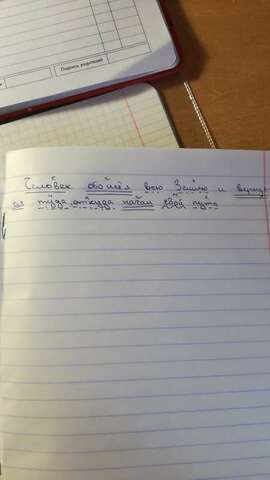 Подпись родителей
Человек обошёл всю Землю и вернул
ся туда, откуда начал свой путь